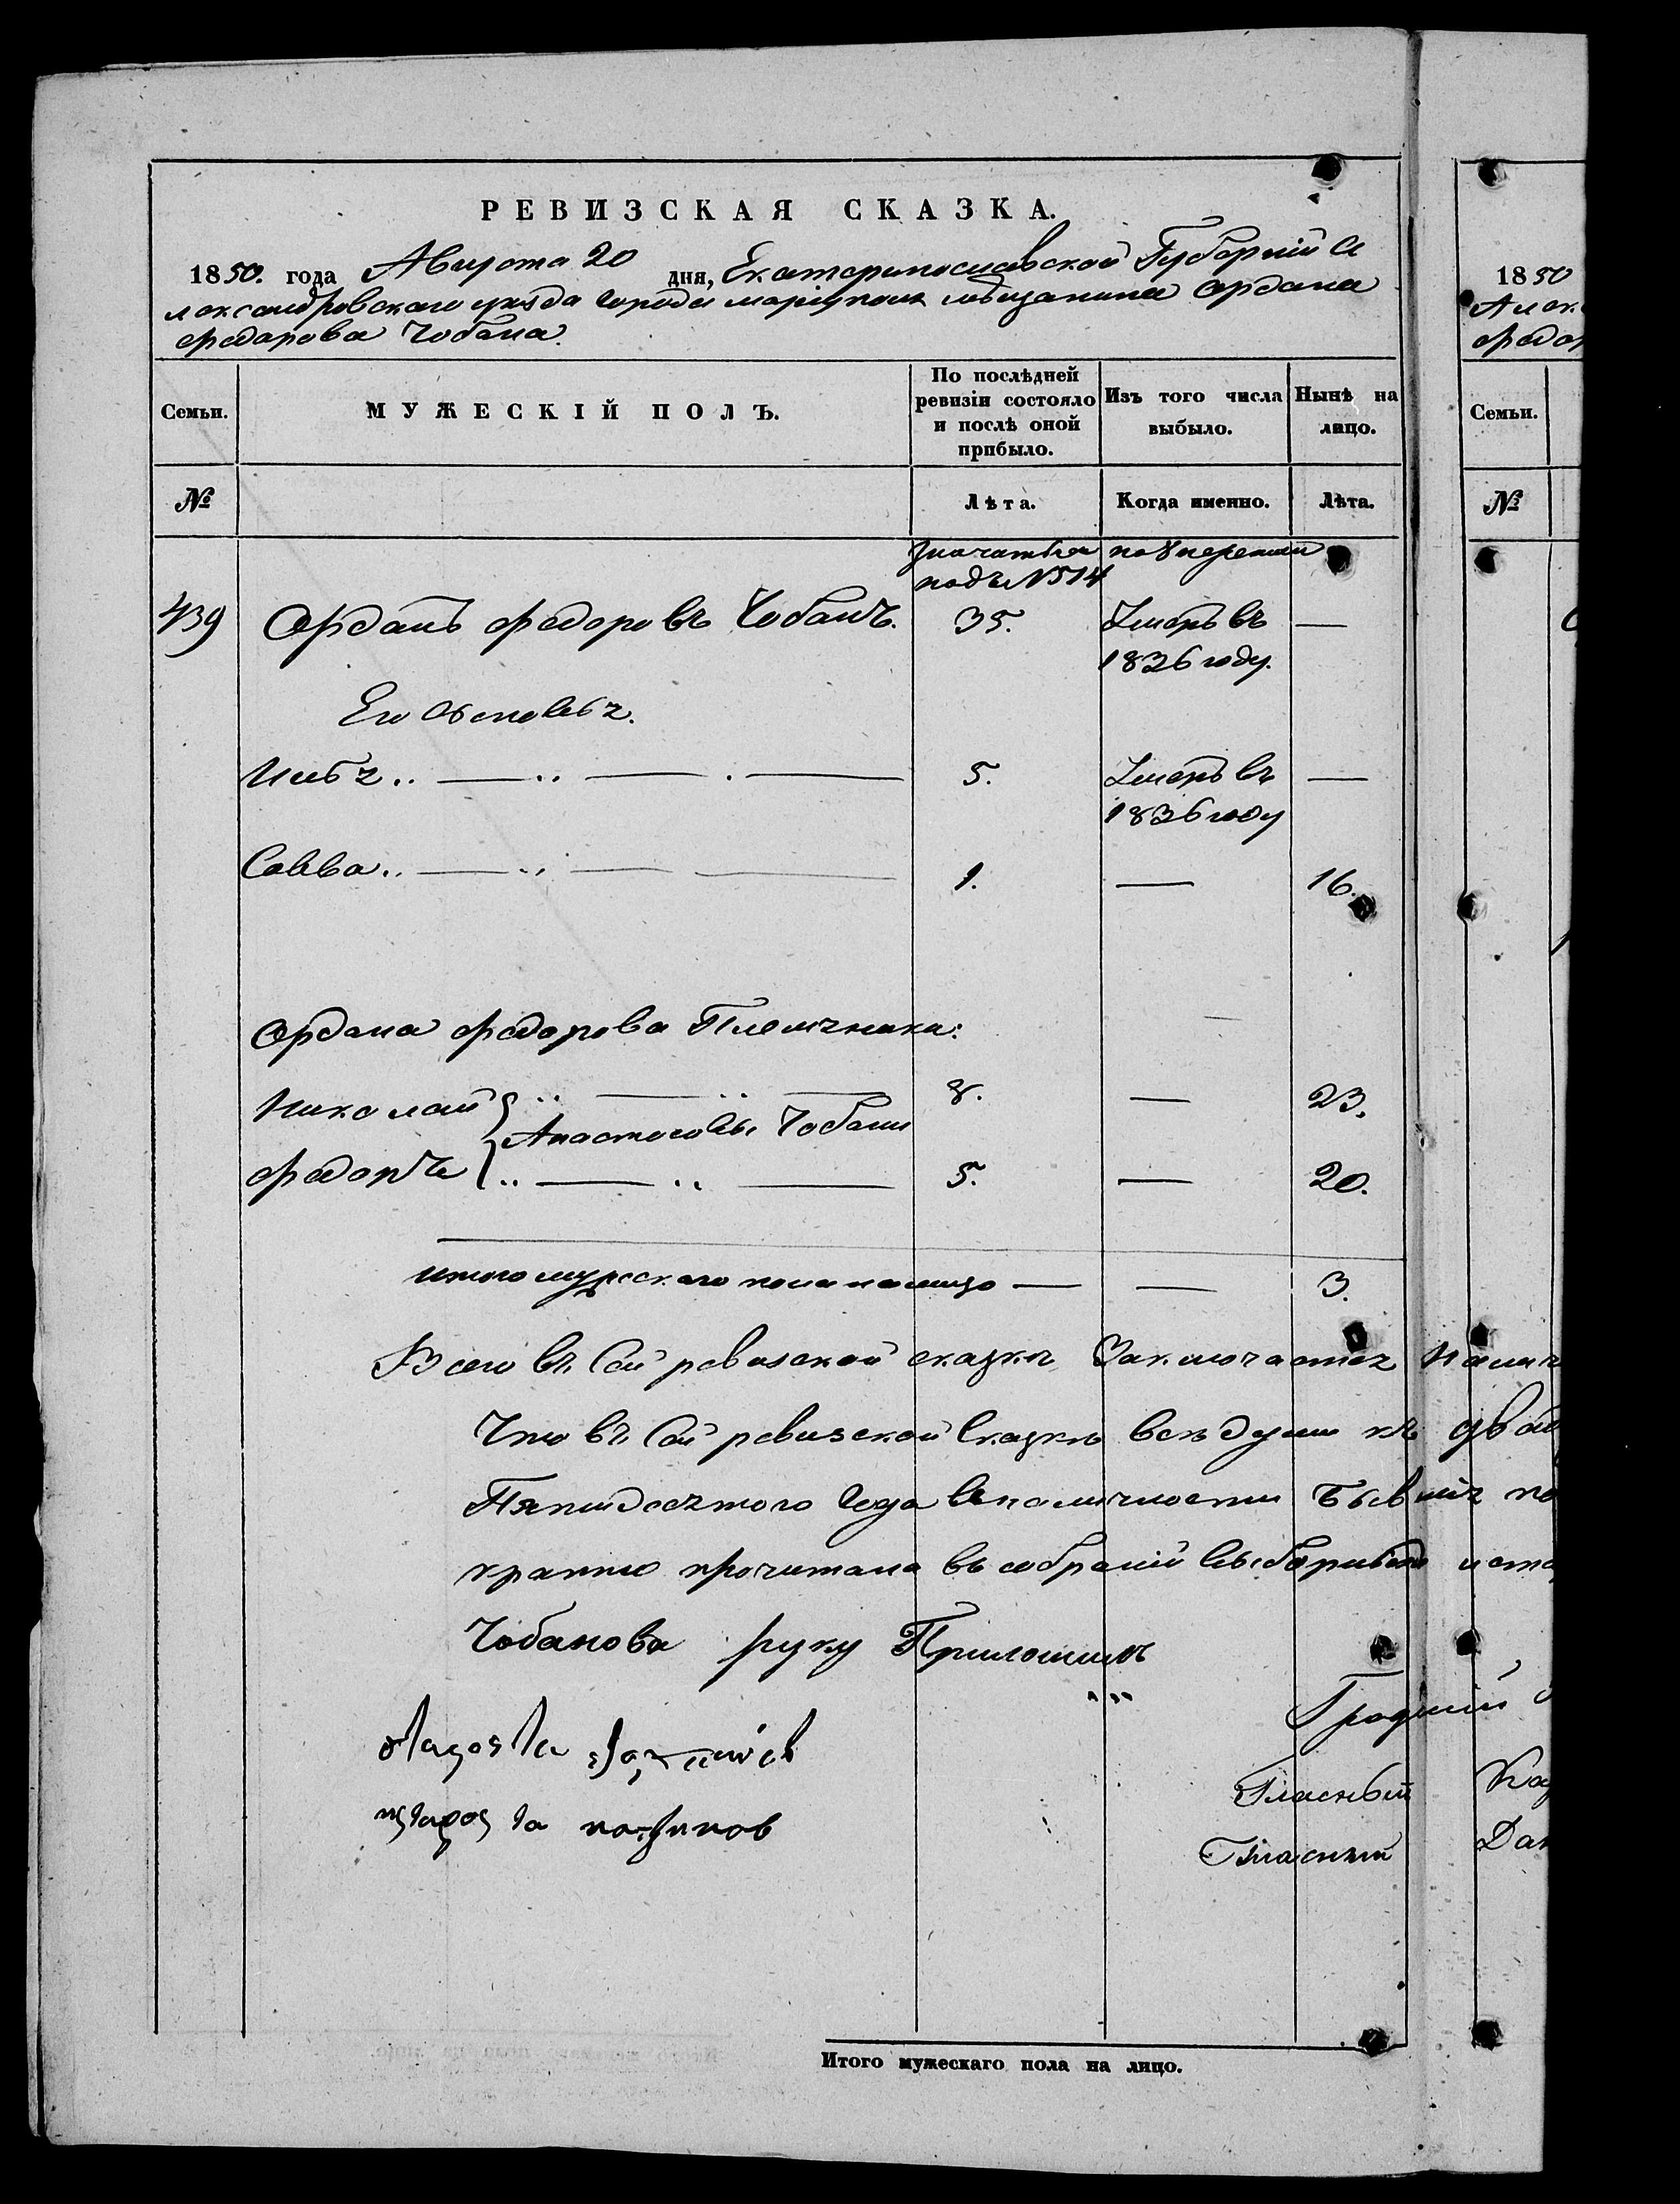 РЕВИЗСКАЯ СКАЗКА.
1850. года Августа 20 дня, Екатеринославской Губерніи А
лександровскаго уезда города маріуполя мещанина Ордана
Федарова Чобана.
Семьи.
МУЖЕСКІЙ ПОЛЪ.
По послѣдней ревизіи состояло и послѣ оной прибыло.
Изъ того числа выбыло.
Нынѣ на лицо.
№
Лѣта.
Когда именно.
Лѣта.
Значатся по 8 переписи
подъ №514
439 Орданъ Федоровъ Чобанъ. 35. Умеръ въ —
1836 году.
Его Сыновья.
5. Умеръ въ —
1836 году
Савва.. — .. — — 1. — 16.
Ордана Федорова Племянники:
Николай .. — .. — 8. — 23.
Анастасовы Чобани
Федоръ .. — .. — 5. — 20.
итого мужескаго пола налицо — — 3.
Всего въ Сей ревизской сказкѣ Заключается Налич
Что въ Сей ревизской Сказкѣ всѣ души къ два
Пятидесятого Года въ наличности Бывшія по
кратно прочитана въ собраніи
Чобанова руку Приложилъ
Гласный
Гласный
Итого мужескаго пола на лицо.
1850
Алек
Федо
Семьи.
№
Дан